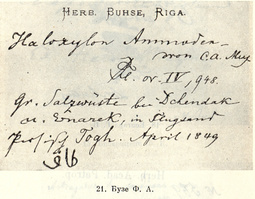 HERB. BUHSE, RIGA.
Haloxylon Ammoden-
dron C.A. Mey
Fl. or. IV, 948.
gr. Salzwüste bei Dchendak
u. Enarek, in Flugsand
persisch Togh. April 1849
طاق
21. Бузе Ф. А.